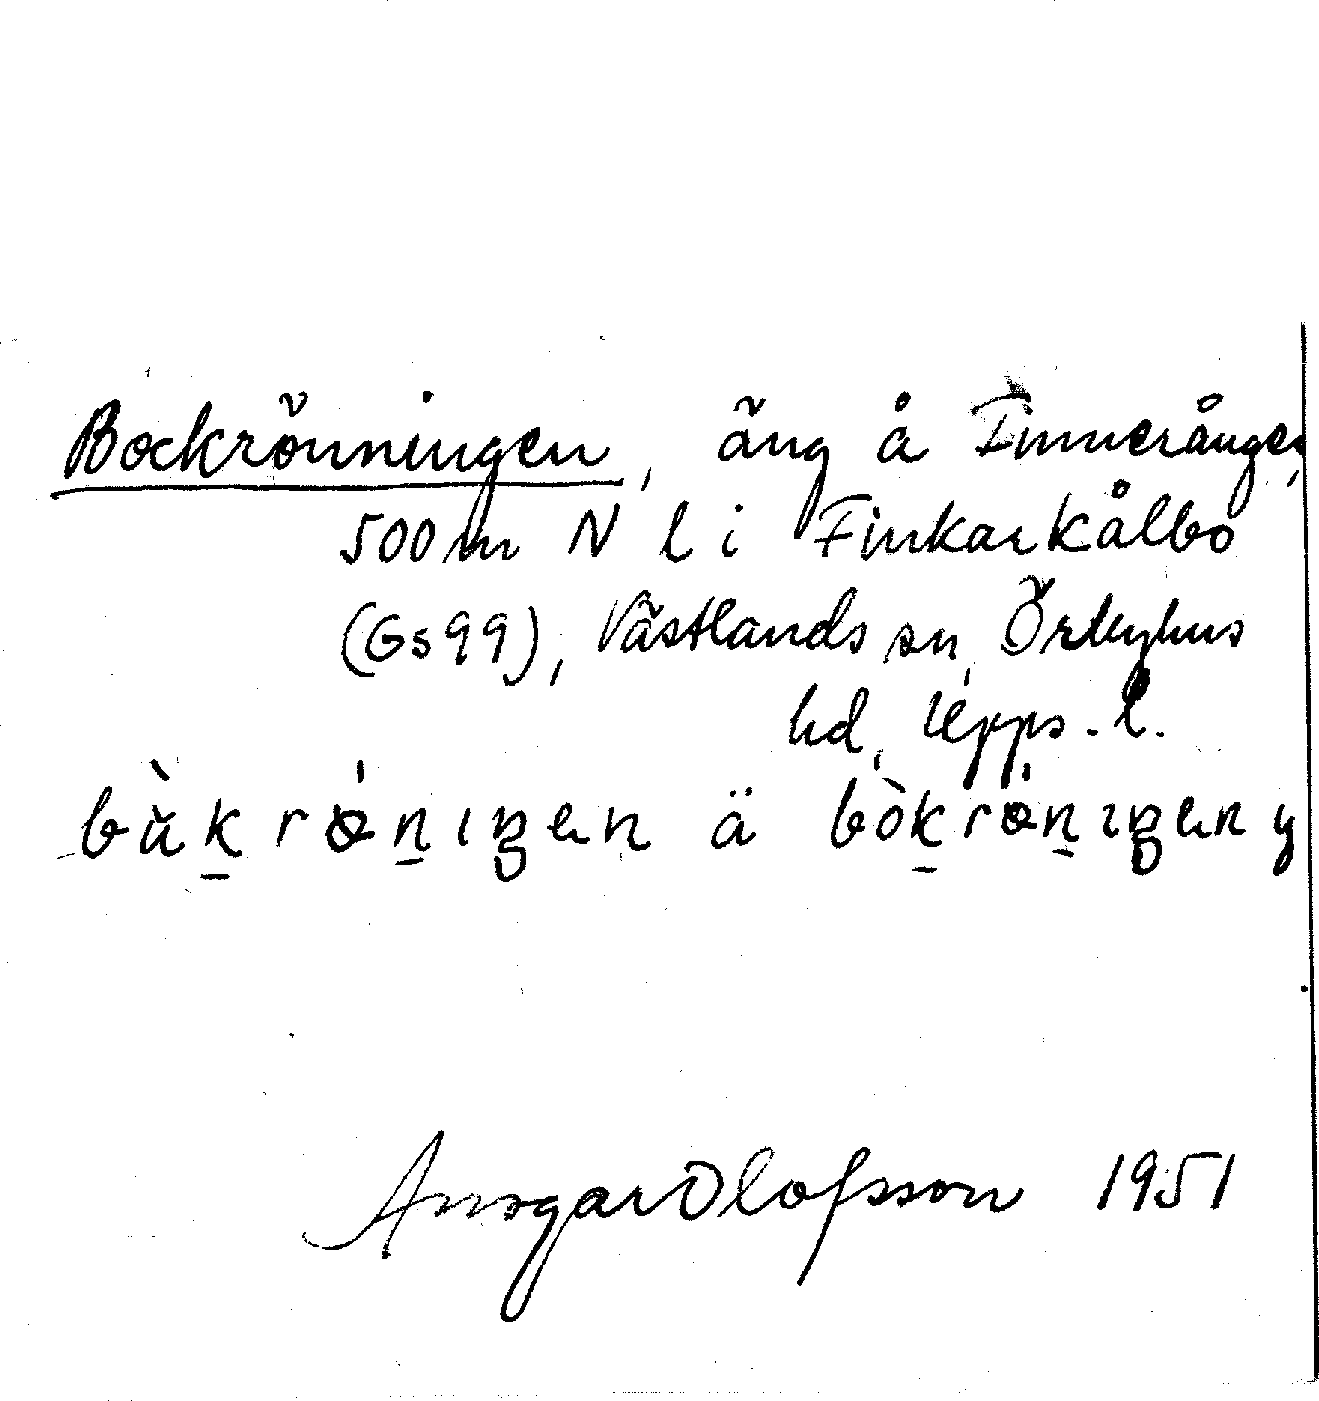 Bockrönningen, äng å Innerängen,
500 m N l i Finkarkålbo
(Gs 99), Västlands sn, Örbyhus
hd, Upps. l.
bùk røniŋen ä bòkrøniŋen y
Ansgar Olofsson 1951